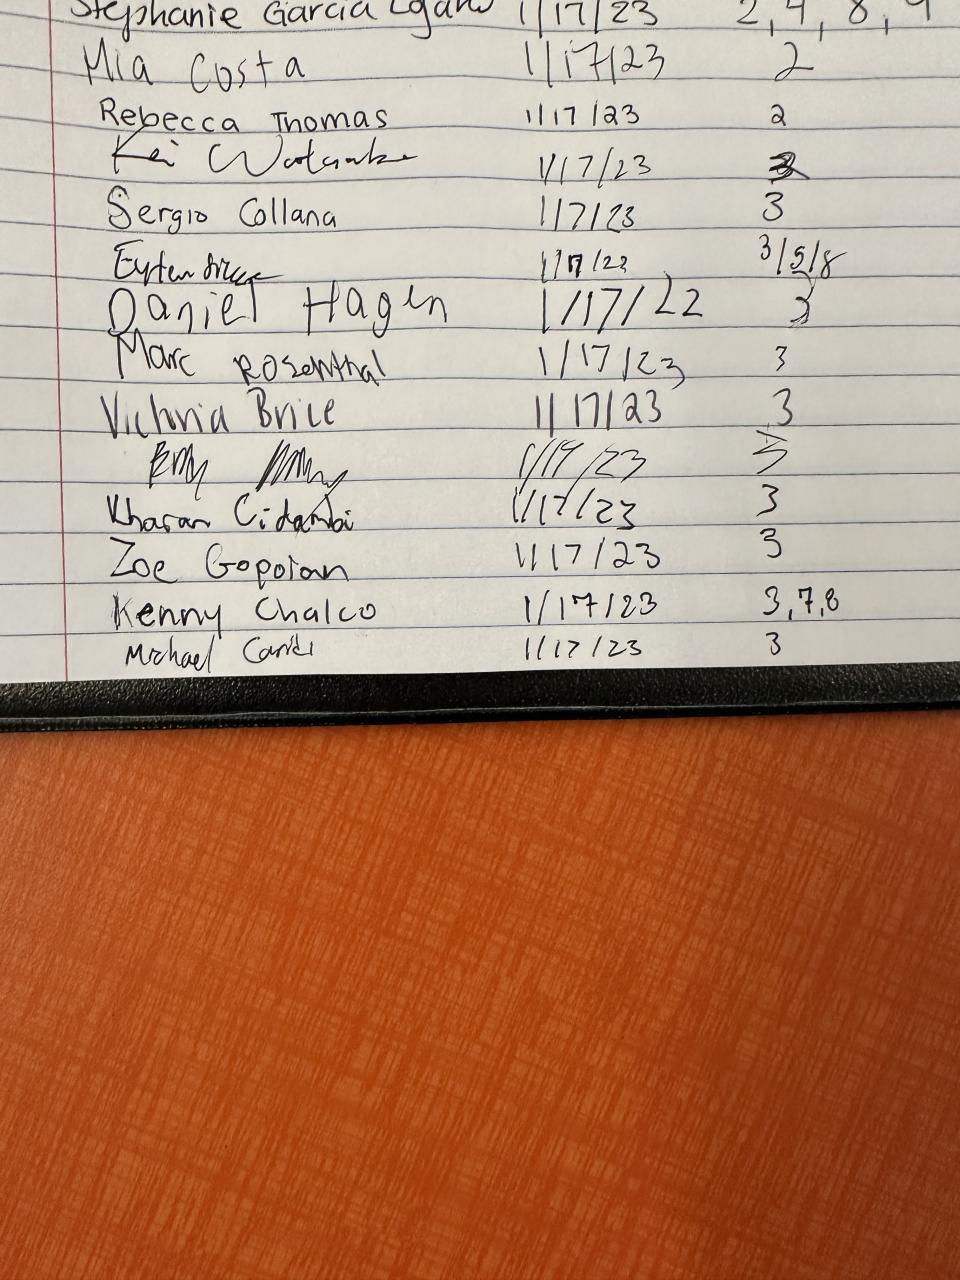 Stephanie Garcia 1/17/23 2, 4, 8, 9
Mia Costa 1/17/23 2
Rebecca Thomas 1/17/23 2
Kei 1/17/23
Sergio Collana 1/17/23 3
1/17/22 3/5/8
Daniel Hagen 1/17/22 3
Marc Rosenthal 1/17/23 3
Victoria Brice 1/17/23 3
1/17/23 3
Kharan Cidambi 1/17/23 3
Zoe Gopoian 1/17/23 3
Kenny Chalco 1/17/23 3,7,8
Michael 1/17/23 3